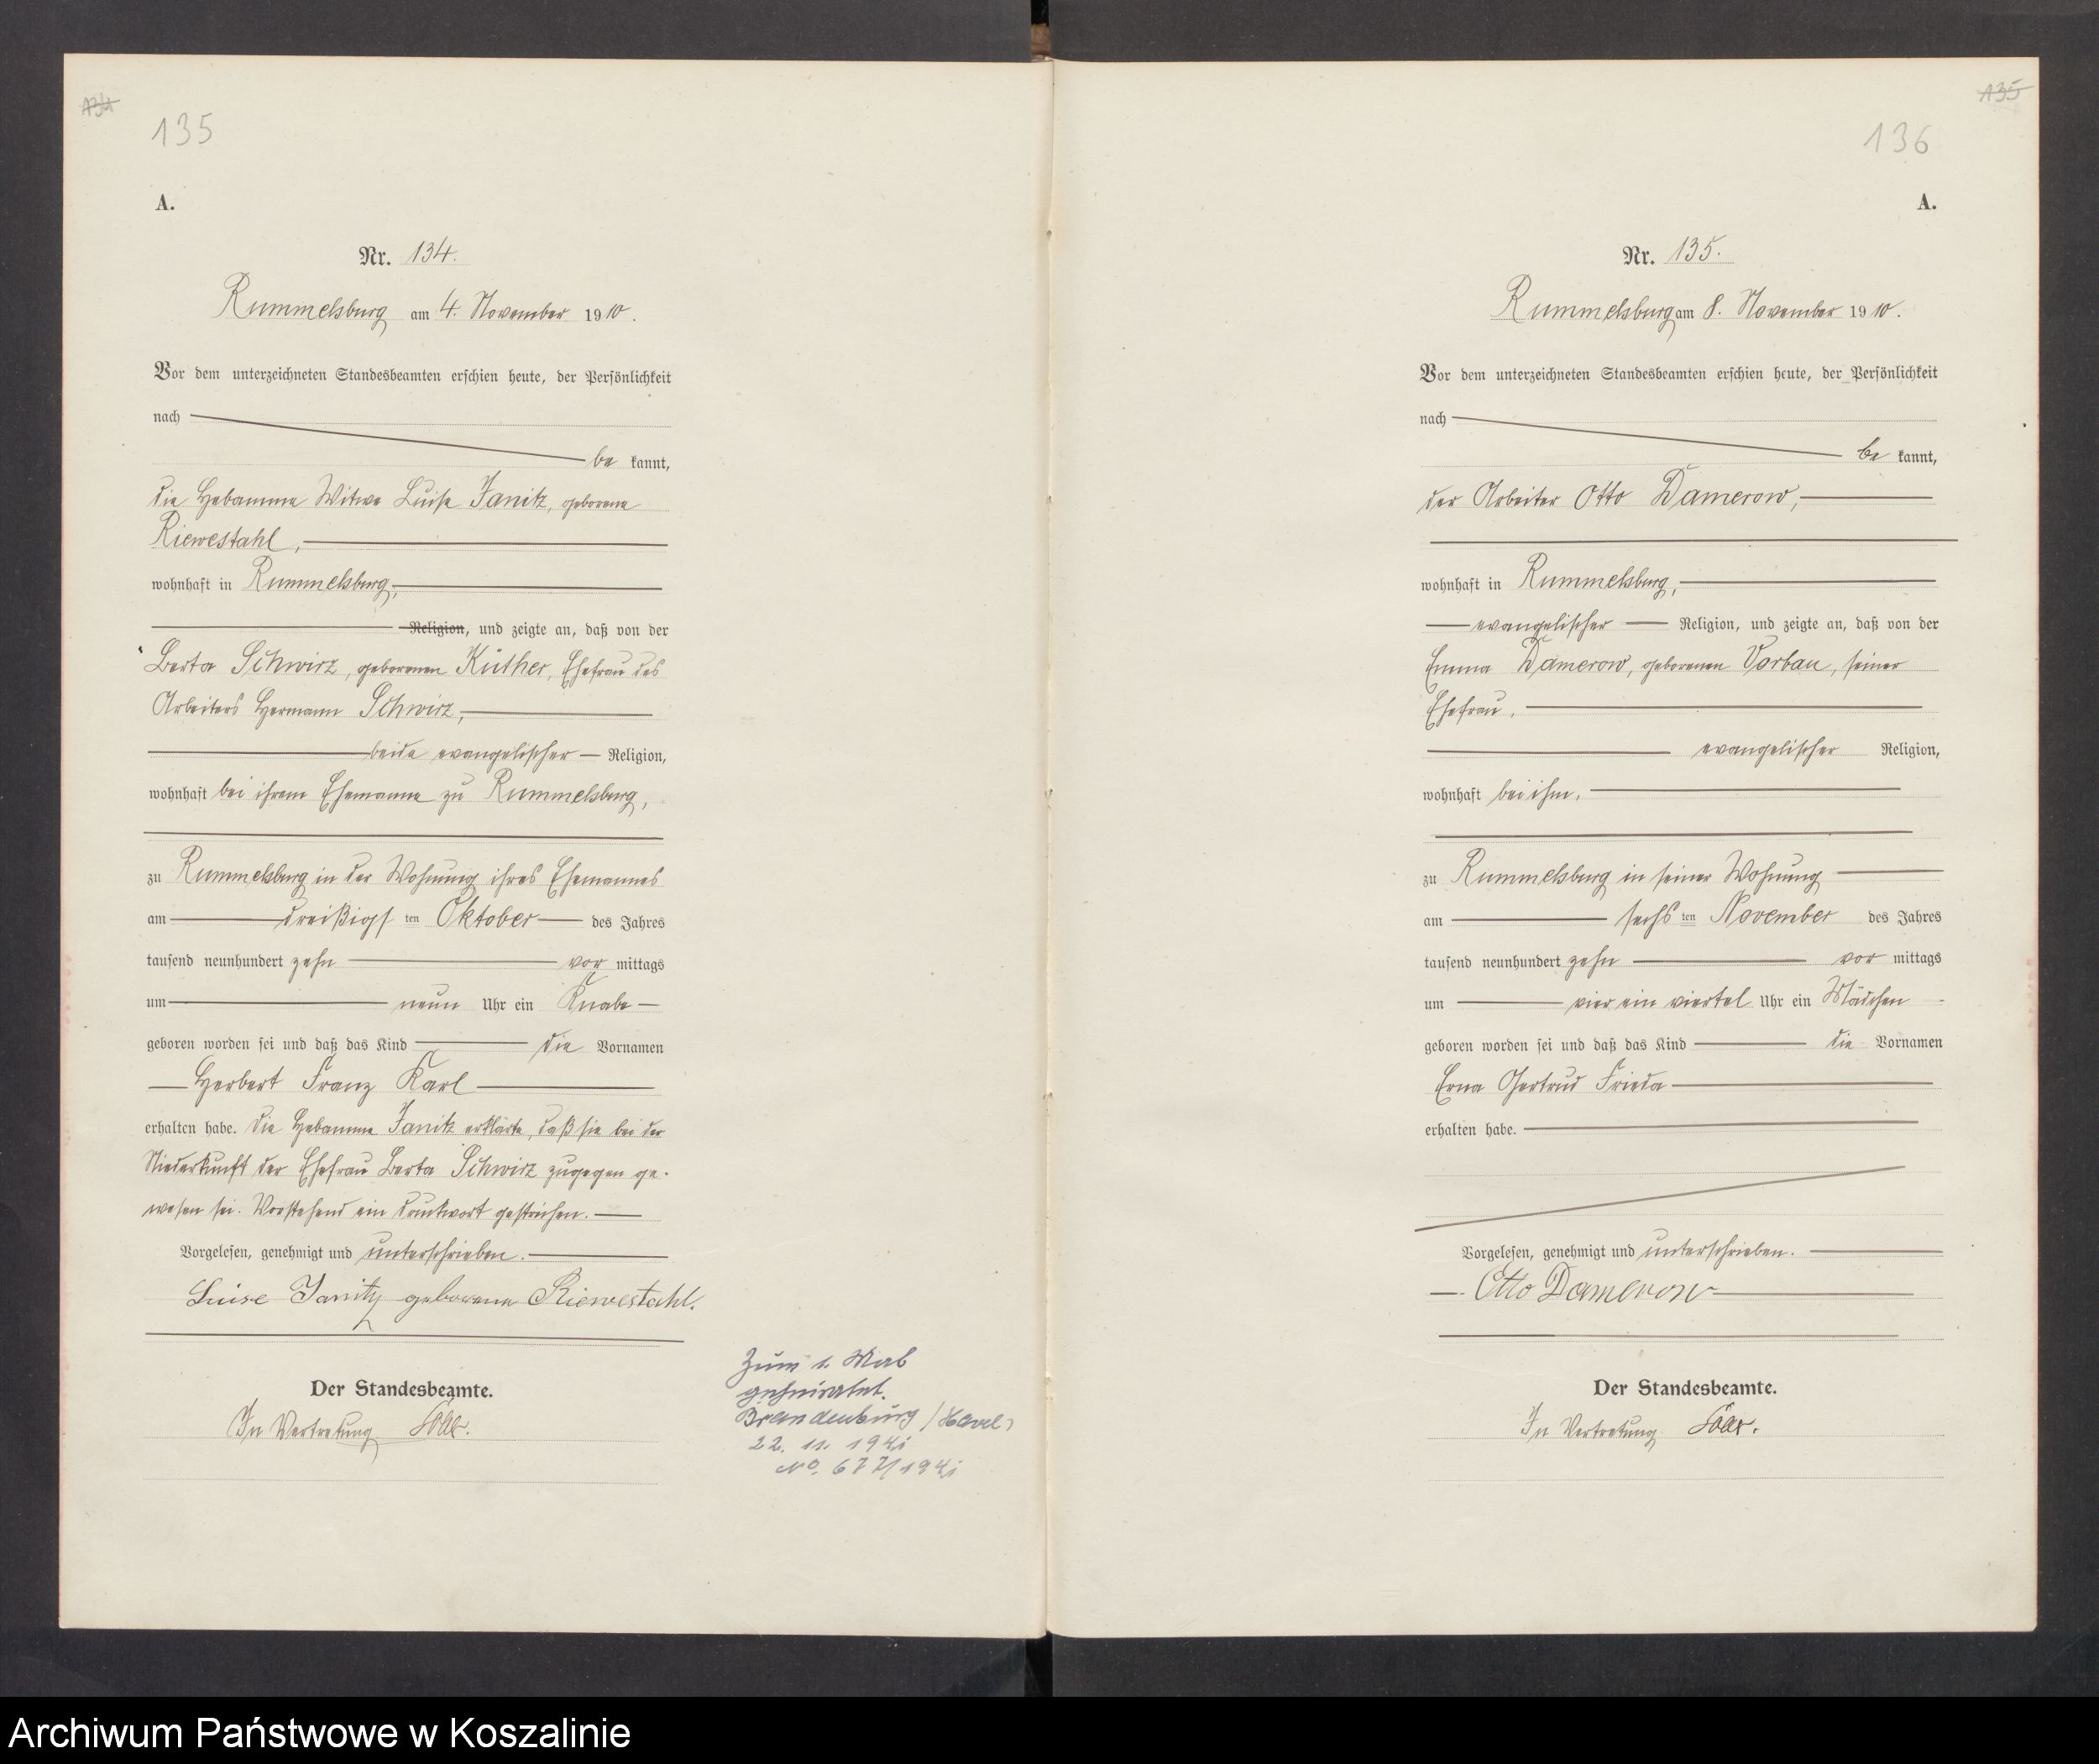 134
135
A.
Nr. 134.
Rummelsburg am 4. November 1910.
Vor dem unterzeichneten Standesbeamten erschien heute, der Persönlichkeit
nach
be kannt,
die Hebamme Witwe Luise Janitz, geborene
Riewestahl,
wohnhaft in Rummelsburg,
Religion, und zeigte an, daß von der
Berta Schwirz, geborenen Küther, Ehefrau des
Arbeiters Hermann Schwirz,
beide evangelischer Religion,
wohnhaft bei ihrem Ehemanne zu Rummelsburg,
zu Rummelsburg in der Wohnung ihres Ehemannes
am dreißigs ten Oktober des Jahres
tausend neunhundert zehn vor mittags
um neun Uhr ein Knabe
geboren worden sei und daß das Kind die Vornamen
Herbert Franz Karl
erhalten habe. Die Hebamme Janitz erklärte, daß sie bei der
Niederkunft der Ehefrau Berta Schwirz zugegen ge-
wesen sei. Vorstehend ein Druckwort gestrichen.
Vorgelesen, genehmigt und unterschrieben.
Luise Janitz geborene Riewestahl.
Der Standesbeamte.
In Vertretung
Zum 1. Mal
geheiratet.
Brandenburg (Havel)
22. 11. 1941
No. 677/1941
135
136
A.
Nr. 135.
Rummelsburg am 8. November 1910.
Vor dem unterzeichneten Standesbeamten erschien heute, der Persönlichkeit
nach
be kannt,
der Arbeiter Otto Damerow,
wohnhaft in Rummelsburg,
evangelischer Religion, und zeigte an, daß von der
Emma Damerow, geborenen Vorbau, seiner
Ehefrau,
evangelischer Religion,
wohnhaft bei ihm,
zu Rummelsburg in seiner Wohnung
am sechs ten November des Jahres
tausend neunhundert zehn vor mittags
um vier ein viertel Uhr ein Mädchen
geboren worden sei und daß das Kind die Vornamen
Erna Gertrud Frieda
erhalten habe.
Vorgelesen, genehmigt und unterschrieben.
Otto Damerow
Der Standesbeamte.
In Vertretung
Archiwum Państwowe w Koszalinie